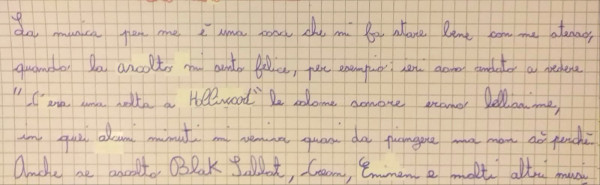 La musica per me è una cosa che mi fa stare bene con me stesso,
quando la ascolto mi sento felice, per esempio: ieri sono andato a vedere
"C'era una volta a Holliwood" le colonne sonore erano bellissime,
in quei alcuni minuti mi veniva quasi da piangere ma non sò perchè.
Anche se ascolto Blak Sabbat, Cream, Eminem e molti altri musi